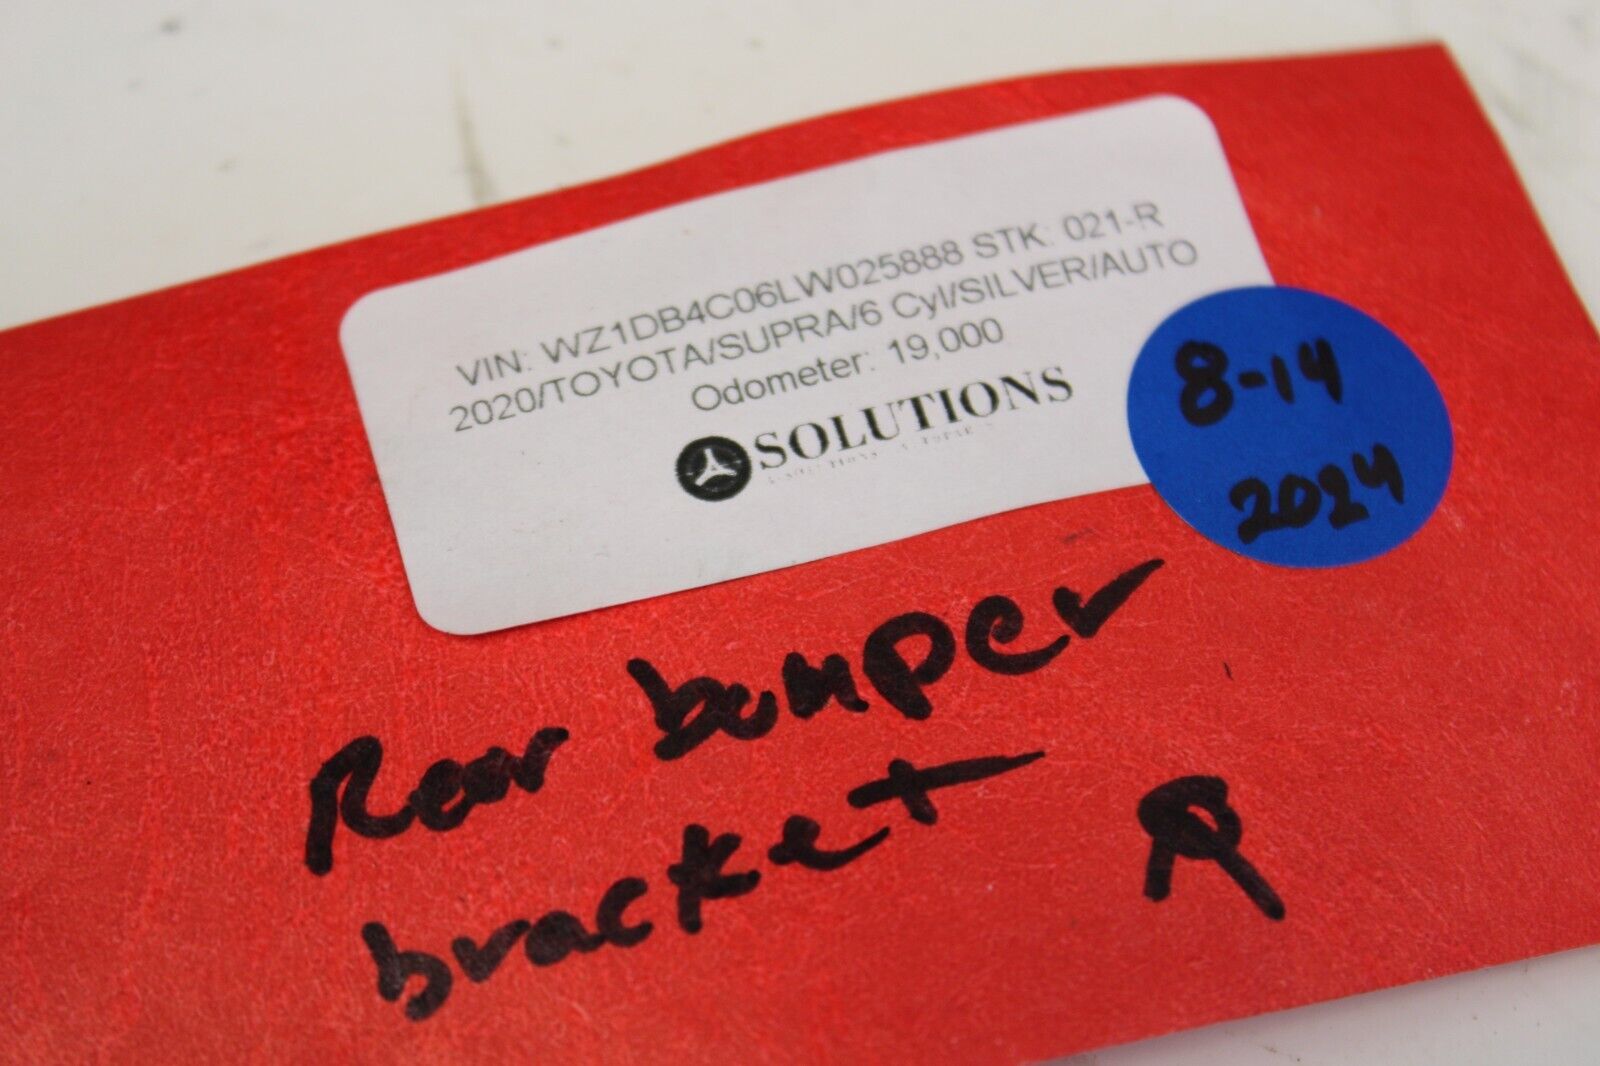 VIN: WZ1DB4C06LW025888 STK: 021-R
2020/TOYOTA/SUPRA/6 Cyl/SILVER/AUTO
Odometer: 19,000
SOLUTIONS
8-14
2024
Rear bumper
bracket R